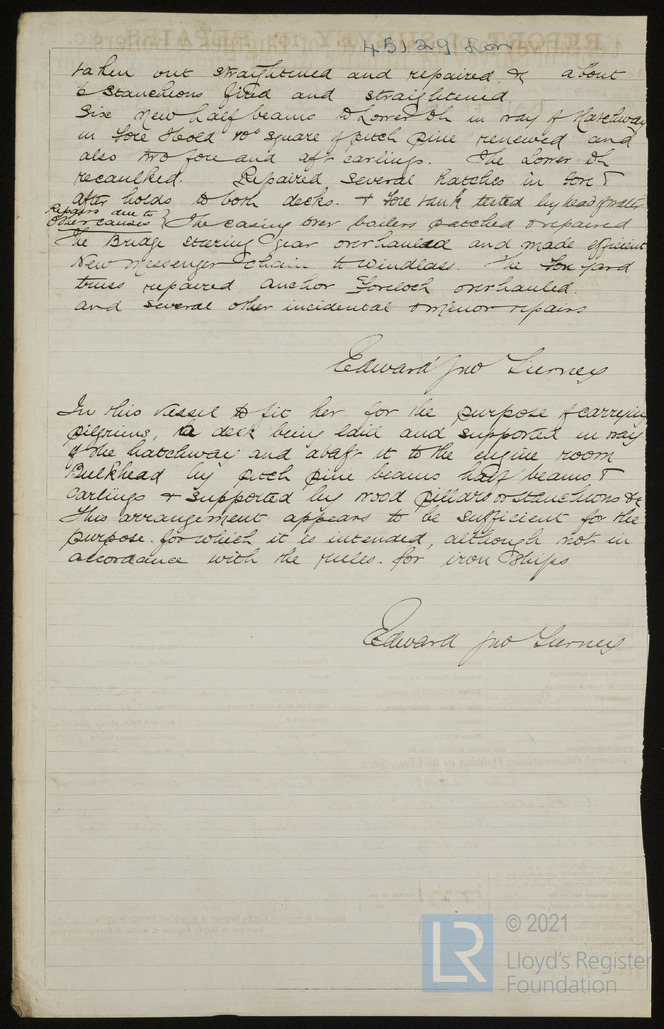 45129 Lon
taken out straightened and repaired & about
6 Stanchions fired and straightened
Six new half beams to Lower Dk in way of Hatchway
in Fore Hold 10" square of pitch pine renewed and
also two fore and aft carlings. The Lower Dk
recaulked. Repaired several hatches in fore &
after holds to both decks. & Fore tank tested by head of water
Repairs due to
other causes } The casing over boilers patched & repaired
The Bridge steering gear overhauled and made efficient
New Messenger Chain to Windlass. The Fore yard
truss repaired anchor Forelock overhauled.
and several other incidental & minor repairs
Edward Jno Tierney
In this vessel to fit her for the purpose of carrying
pilgrims, a deck being laid and supported in way
of the hatchway and abaft it to the engine room
Bulkhead by pitch pine beams half beams &
Carlings & supported by wood pillars or stanchions &c
This arrangement appears to be sufficient for the
purpose for which it is intended, although not in
accordance with the rules for iron ships.
Edward Jno Tierney
LR © 2021
Lloyd's Register
Foundation